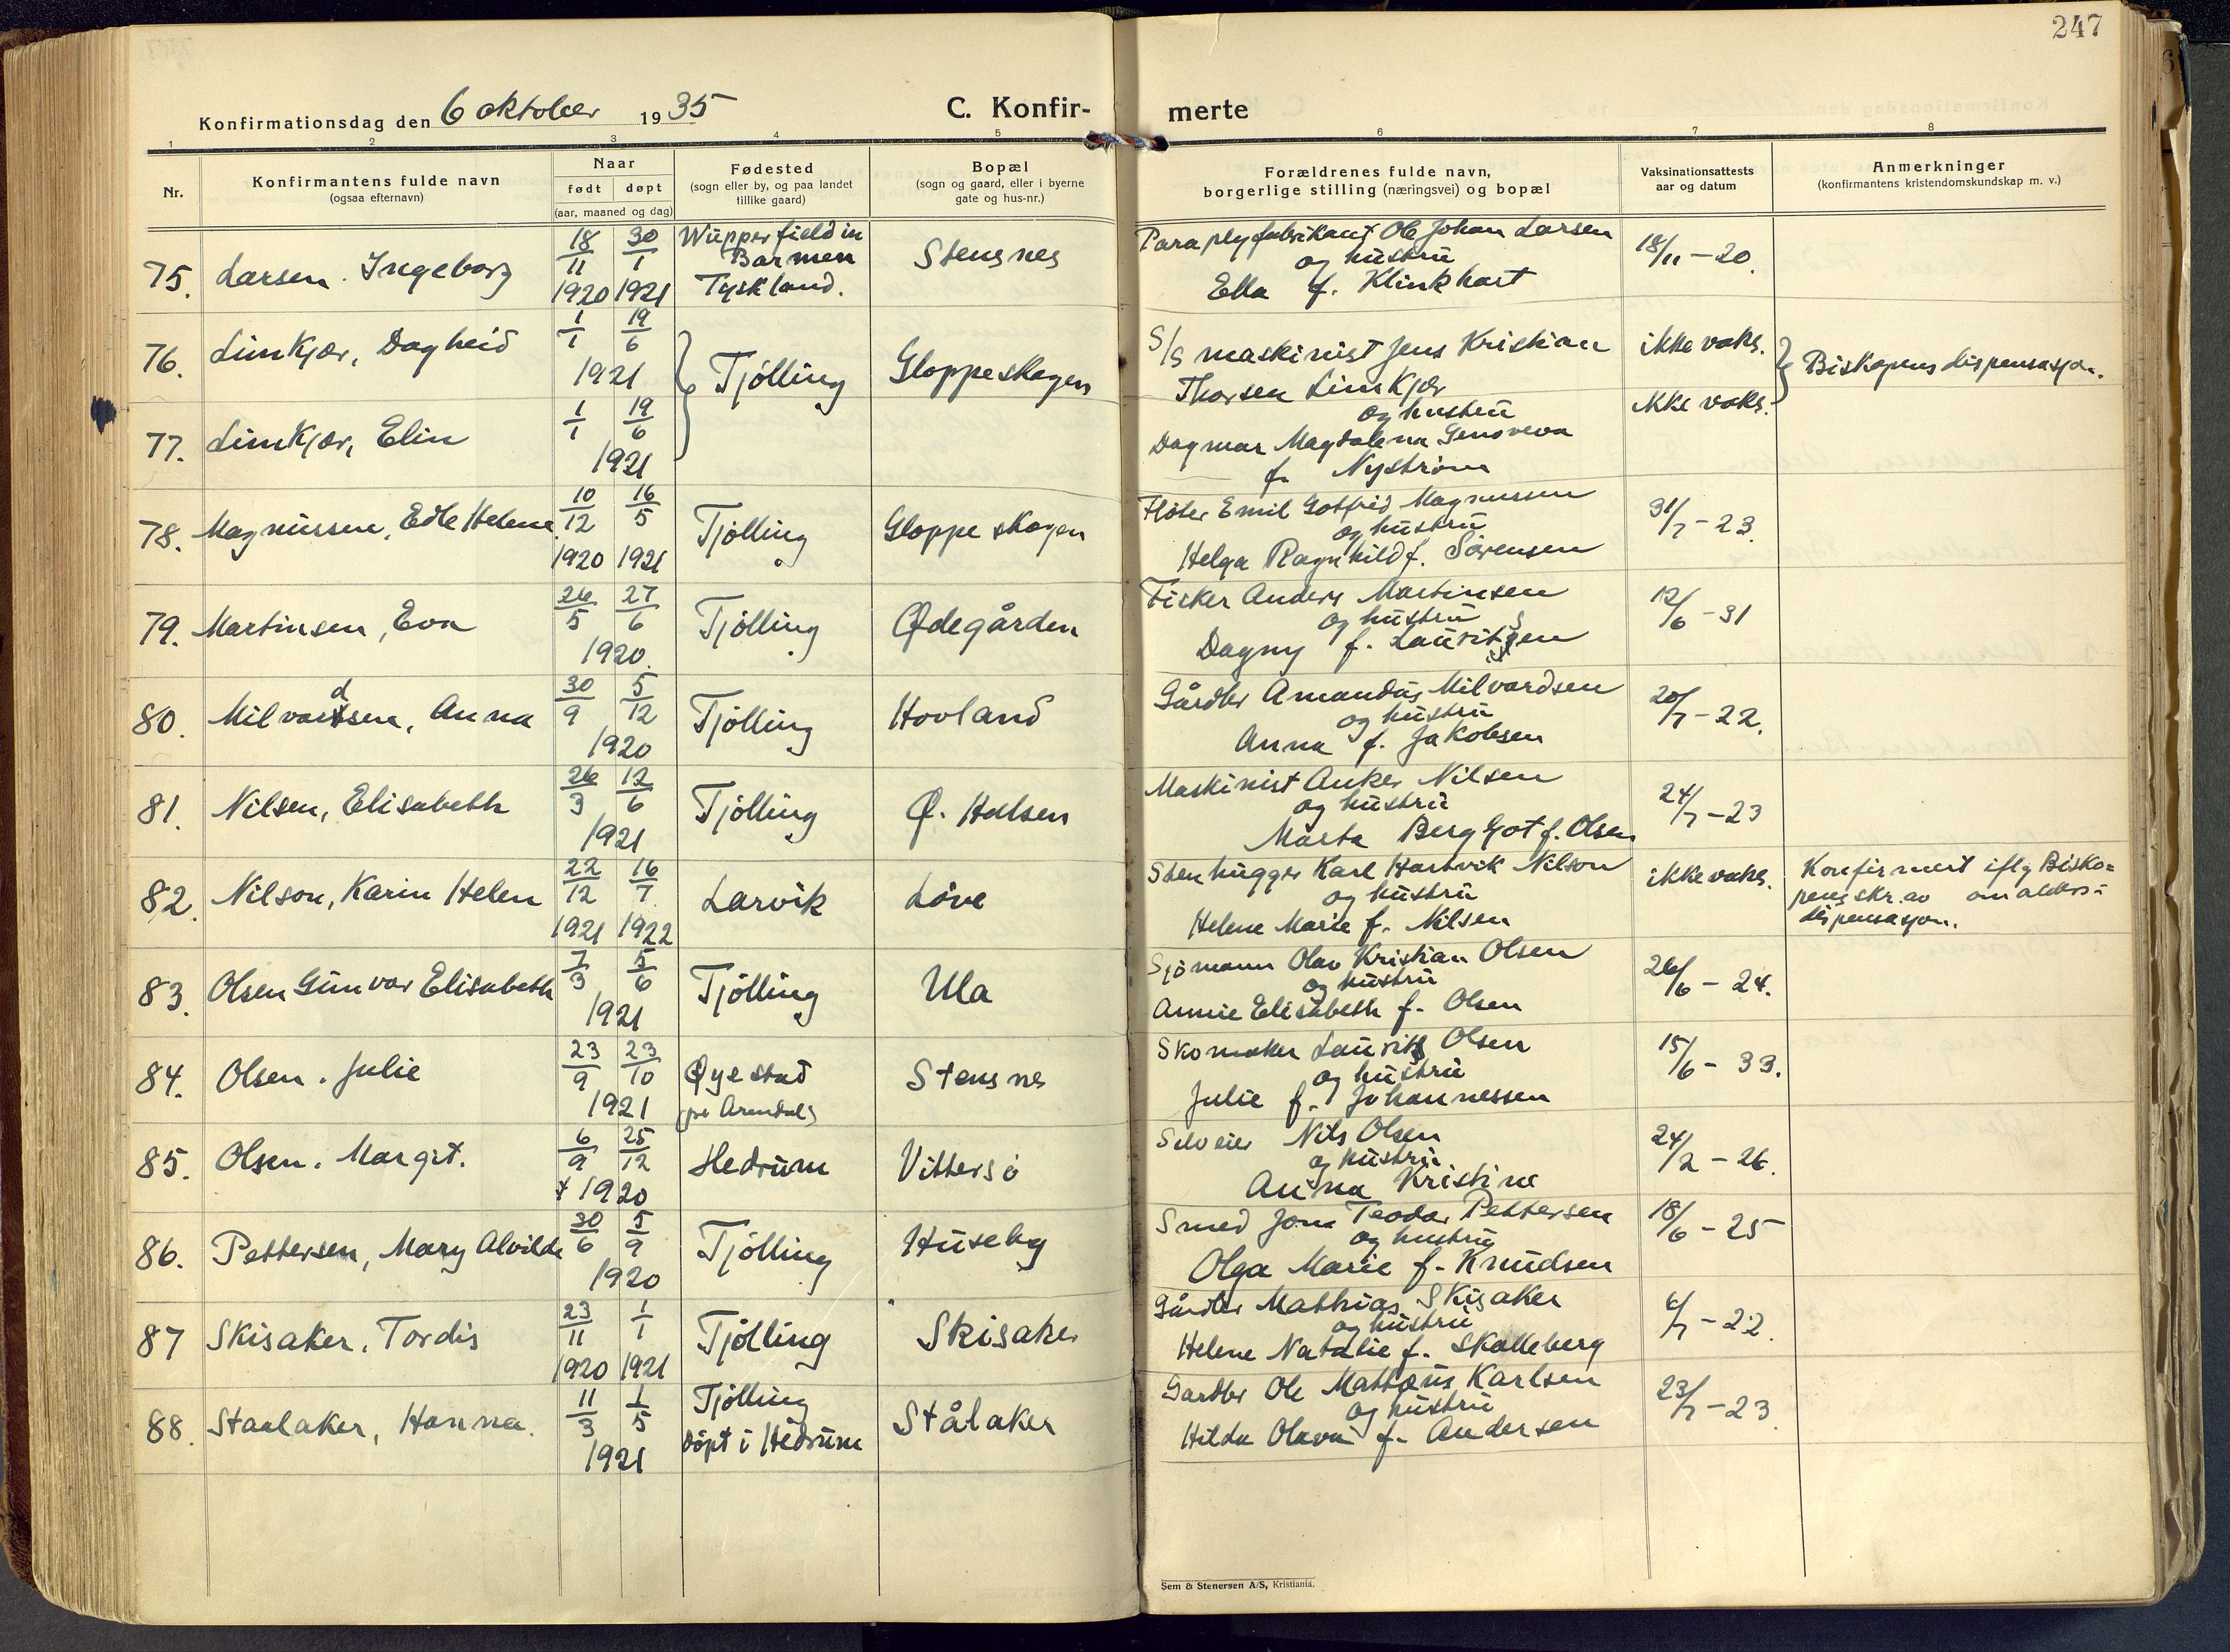 247
Konfirmationsdag den 6 oktober 1935
C. Konfir-
merte
1 2 3 4 5 6 7 8
Nr.
Konfirmantens fulde navn
(ogsaa efternavn)
Naar
født døpt
(aar, maaned og dag)
Fødested
(sogn eller by, og paa landet
tillike gaard)
Bopæl
(sogn og gaard, eller i byerne
gate og hus-nr.)
Forældrenes fulde navn,
borgerlige stilling (næringsvei) og bopæl
Vaksinationsattests
aar og datum
Anmerkninger
(konfirmantens kristendomskundskap m. v.)
75. Larsen. Ingeborg
18/11 1920 30/1 1921
Wupperfield in
Barmen
Tyskland.
Stensnes
Paraplyfabrikant Ole Johan Larsen
og hustru
Ella f. Klinkhart
18/11 - 20.
76. Limkjær, Dagheid
1/1 19/6
1921
Tjølling
Gloppeskogen
S/S maskinist Jens Kristian
Thorsen Limkjær
og hustru
Dagmar Magdalena Genoveva
f. Nyström
ikke vaks.
Biskopens dispensasjon.
77. Limkjær, Elin
1/1 19/6
1921
ikke vaks.
78. Magnussen, Edle Helene
10/12 1920 16/5 1921
Tjølling
Gloppeskogen
Fløter Emil Gotfred Magnussen
og hustru
Helga Ragnhild f. Sørensen
31/7 - 23.
79. Martinsen, Eva
26/5 27/6
1920.
Tjølling
Ødegården
Fisker Anders Martinsen
og hustru
Dagny f. Lauritsen
12/6 - 31
80. Milvardsen, Anna
30/9 5/12
1920
Tjølling
Hovland
Gårdbr Amandus Milvardsen
og hustru
Anna f. Jakobsen
20/7 - 22.
81. Nilsen, Elisabeth
26/3 12/6
1921
Tjølling
Ø. Halsen
Maskinist Anker Nilsen
og hustru
Marta Berggot f. Olsen
24/7 - 23
82. Nilson, Karin Helen
22/12 1921 16/7 1922
Larvik
Løve
Stenhugger Karl Hartvik Nilson
og hustru
Helene Marie f. Nilsen
ikke vaks.
Konfirmert iflg Bisko-
pens skr. av om alders-
dispensasjon.
83. Olsen Gunvor Elisabeth
7/3 5/6
1921
Tjølling
Ula
Sjømann Olav Kristian Olsen
og hustru
Annie Elisabeth f. Olsen
26/6 - 24.
84. Olsen. Julie
23/9 23/10
1921
Øyestad
pr Arendal
Stensnes
Skomaker Laurits Olsen
og hustru
Julie f. Johannessen
15/6 - 33.
85. Olsen. Margit.
6/9 25/12
1920
Hedrum
Vittersø
Selveier Nils Olsen
og hustru
Anna Kristine
24/2 - 26.
86. Pettersen, Mary Alvilde
30/6 5/9
1920
Tjølling
Huseby
Smed Jons Teodor Pettersen
og hustru
Olga Marie f. Knudsen
18/6 - 25
87 Skisaker. Tordis
23/11 1920 1/1 1921
Tjølling
Skisaker
Gårdbr Mathias Skisaker
og hustru
Helene Natalie f. Skalleberg
6/7 - 22.
88. Staalaker, Hanna.
11/3 1/5
1921
Tjølling
døpt i Hedrum
Stålaker
Gardbr Ole Mattæus Karlsen
og hustru
Hilda Olava f. Andersen
23/7 - 23
Sem & Stenersen A/S, Kristiania.